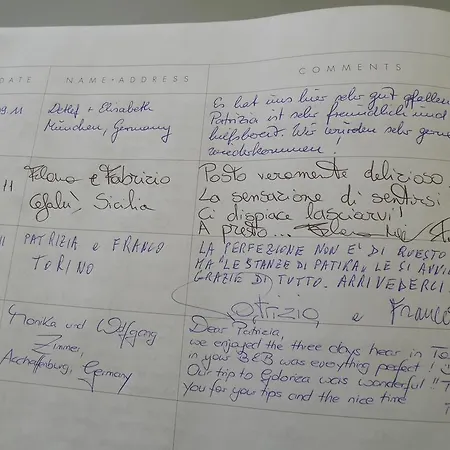 DATE NAME • ADDRESS COMMENTS
09.11
Detlef + Elisabeth
München, Germany
Es hat uns hier sehr gut gefallen
Patrizia ist sehr freundlich und
hilfsbereit. Wir würden sehr gerne
wiederkommen!
11
Elena e Fabrizio
Cefalù, Sicilia
Posto veramente delizioso
La sensazione di sentirsi
Ci dispiace lasciarvi!
A presto... Elena
11
PATRIZIA e FRANCO
TORINO
LA PERFEZIONE NON E' DI QUESTO
MA "LE STANZE DI PATIRA" LE SI AVVI
GRAZIE DI TUTTO. ARRIVEDERCI
Patrizia e Franco
Monika und Wolfgang
Zimmer,
Aschaffenburg, Germany
Dear Patrizia,
we enjoyed the three days hear in To
in your B&B was everything perfect!
Our trip to Gdorea was wonderful!
you for your tips and the nice time